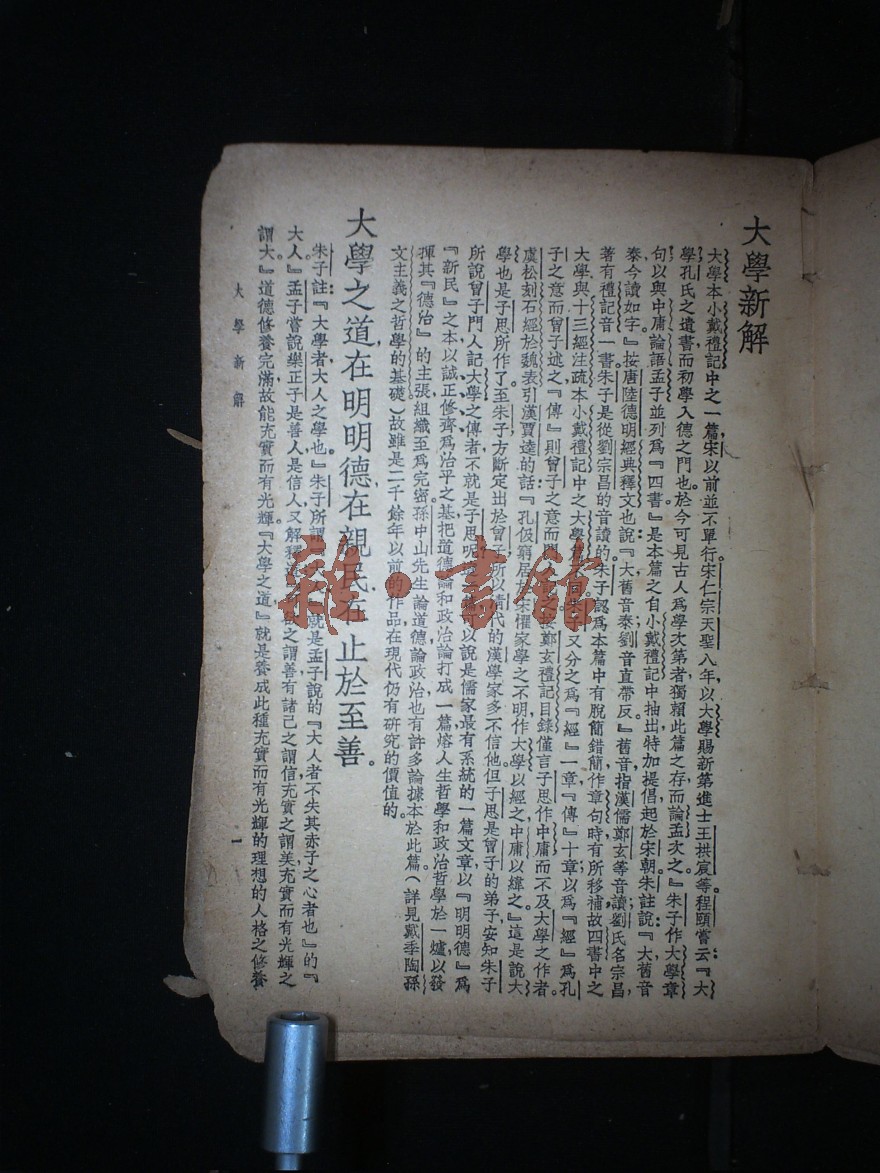 大學新解
大學本小戴禮記中之一篇，宋以前並不單行。宋仁宗天聖八年，以大學賜新第進士王拱宸等。程頤嘗云：『大
學，孔氏之遺書，而初學入德之門也。於今可見古人爲學次第者，獨賴此篇之存，而論孟次之。』朱子作大學章
句，以與中庸論語孟子並列爲『四書』，是本篇之自小戴禮記中抽出，特加提倡，起於宋朝。朱註說：『大舊音
泰，今讀如字。』按唐陸德明經典釋文也說：『大舊音泰，劉音直帶反。』舊音，指漢儒鄭玄等音讀；劉氏名宗昌，
著有禮記音一書。朱子是從劉宗昌的音讀的。朱子認爲本篇中有脫簡錯簡，作章句時有所移補，故四書中之
大學與十三經注疏本小戴禮記中之大學
同。朱子又分之爲『經』一章，『傳』十章，以爲『經』爲孔
子之意而曾子述之，『傳』則曾子之意而
按鄭玄禮記目錄僅言子思作中庸而不及大學之作者。
虞松刻石經於魏表引漢賈逵的話：『孔伋窮居
宋，懼家學之不明，作大學以經之，中庸以緯之。』這是說大
學也是子思所作了。至朱子方斷定出於曾子，所以清代的漢學家多不信他。但子思是曾子的弟子，安知朱子
所說曾子門人記大學之傳者，不就是子思呢？
可以說是儒家最有系統的一篇文章，以『明明德』爲
『新民』之本，以誠正修齊爲治平之基，把道德論和政治論打成一篇，熔人生哲學和政治哲學於一爐，以發
揮其『德治』的主張，組織至爲完密。孫中山先生論道德論政治，也有許多論據本於此篇，（詳見戴季陶孫
文主義之哲學的基礎）故雖是二千餘年以前的作品，在現代仍有研究的價值的。
大學之道，在明明德，在親民，在止於至善。
朱子註：『大學者，大人之學也。』朱子所謂
大人，就是孟子說的『大人者不失其赤子之心者也』的『
大人。』孟子嘗說樂正子是善人，是信人，又解釋道
之謂善，有諸己之謂信，充實之謂美，充實而有光輝之
謂大。』道德修養完滿，故能充實而有光輝。『大學之道』就是養成此種充實而有光輝的理想的人格之修養
大學新解
一
雜·書館